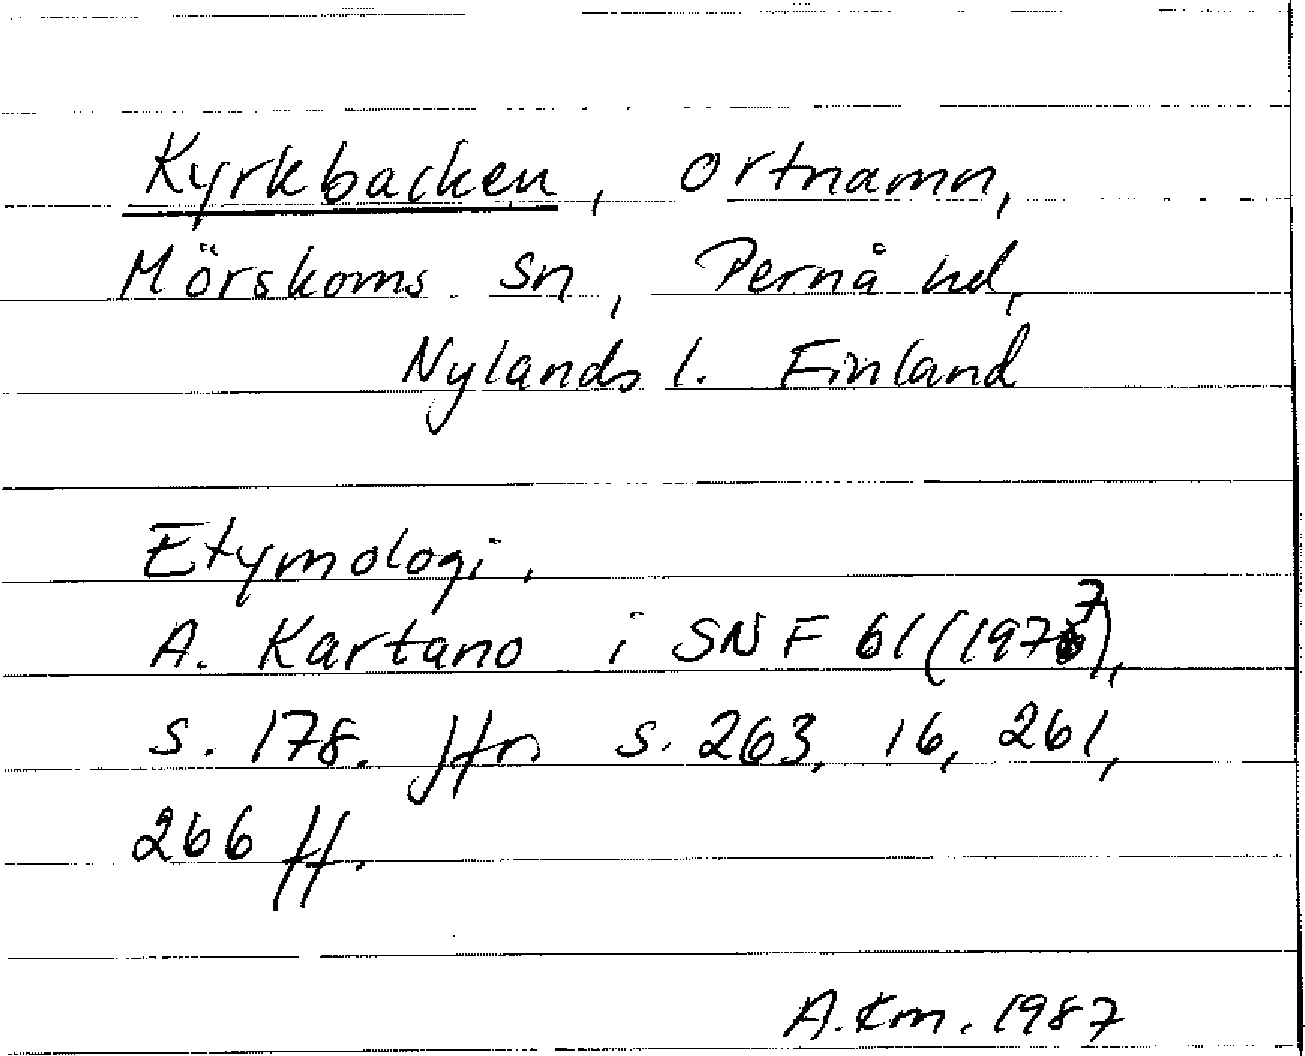 Kyrkbacken, ortnamn,
Mörskoms sn, Pernå hd,
Nylands l. Finland
Etymologi.
A. Kartano i SNF 61 (1977),
s. 178. Jfr s. 263, 16, 261,
266 ff.
A.Km. 1987